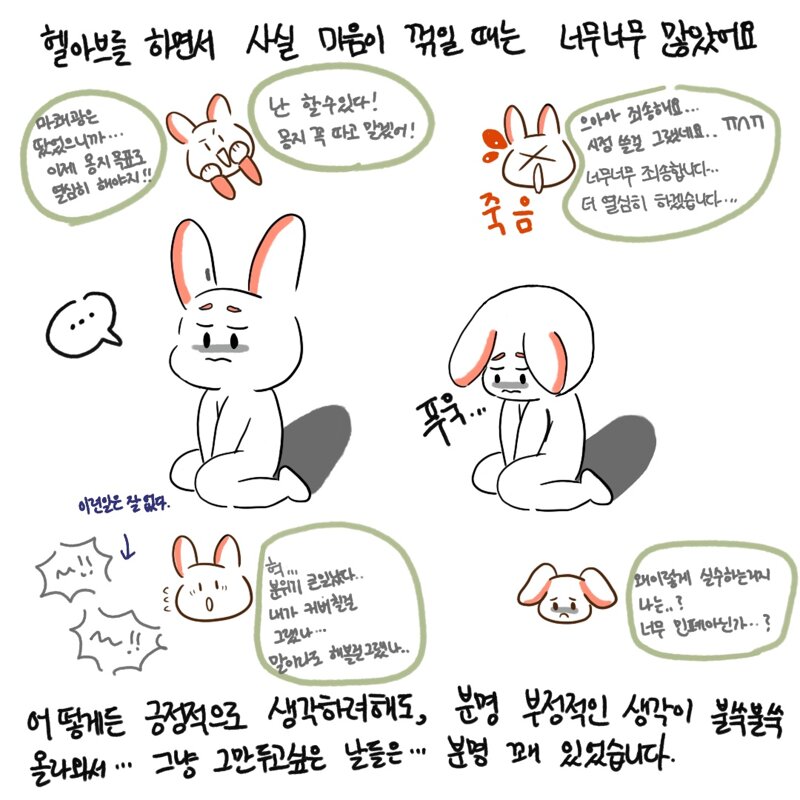 헬아브를 하면서 사실 마음이 꺾일 때는 너무너무 많았어요
마쾌광은
땄었으니까...
이제 몽지목표로
열심히 해야지!!
난 할수있다!
몽지 꼭 따고 말겠어!
으아아 죄송해요...
시정 쓸걸 그랬네요.. ㅠㅅㅠ
너무너무 죄송합니다...
더 열심히 하겠습니다...
죽음
...
푸욱...
이런일은 잘 없다.
~!!
~!!
헉...
분위기 큰일났다..
내가 커버칠걸
그랬나...
말이라도 해볼걸그랬나..
왜이렇게 실수하는거지
나는..?
너무 민폐아닌가...?
어떻게든 긍정적으로 생각하려해도, 분명 부정적인 생각이 불쑥불쑥
올라와서... 그냥 그만두고싶은 날들은... 분명 꽤 있었습니다.